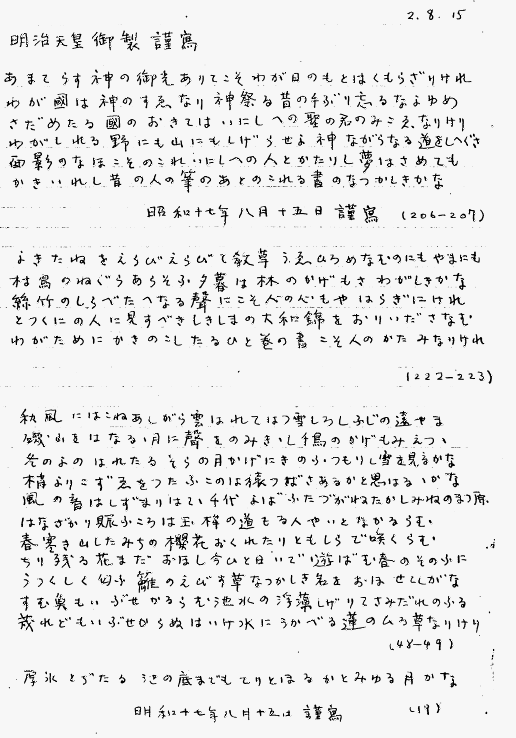 2.8.15
明治天皇御製謹寫
あまてらす神の御光ありてこそわが日のもとはくもらざりけれ
わが國は神のすゑなり神祭る昔の手ぶり忘るなよゆめ
さだめたる國のおきてはいにしへの聖の君のみこゑなりけり
わがしれる野にも山にもしげらせよ神ながらなる道をしへぐさ
面影のなほこそのこれいにしへの人とかたりし夢はさめても
かきいれし昔の人の筆のあとのこれる書のなつかしきかな
昭和十七年八月十五日 謹寫 (206-207)
よきたねをえらびえらびて教草うゑひろめなむのにもやまにも
村鳥のねぐらあらそふ夕暮は林のかげもさわがしきかな
絲竹のしらべたへなる聲にこそ人の心もやはらぎにけれ
とつくにの人に見すべきしきしまの大和錦をおりいださなむ
わがためにかきのこしたるひと巻の書こそ人のかたみなりけれ
(222-223)
秋風にはこねあしがら雲はれてはつ雪しろしふじの遠やま
磯山をはなるゝ月に聲をのみきゝし千鳥のかげもみえつゝ
冬のよのはれたるそらの月かげにきのふつもりし雪を見るかな
梢よりこずゑをつたふこのは猿つばさあるかと思はるゝかな
風の音はしずまりはてゝ千代よばふたづがねたかしみねのまつ原
はなざかり賑ふころは玉桙の道もる人やいとなかるらむ
春寒き山したみちの櫻花おくれたりともしらで咲くらむ
ちり残る花まだおほし今ひと日いでゝ遊ばむ春のそのふに
うつくしく匂ふ籬のえびす草なつかしき名をおほせてしがな
すむ魚もいぶせかるらむ池水の浮藻しげりてさみだれのふる
茂れどもいぶせからぬはいけ水にうかべる蓮のひろ草なりけり
(48-49)
厚氷とぢたる池の底までもてりとほるかとみゆる月かな
明和十七年八月十五日 謹寫 (19)